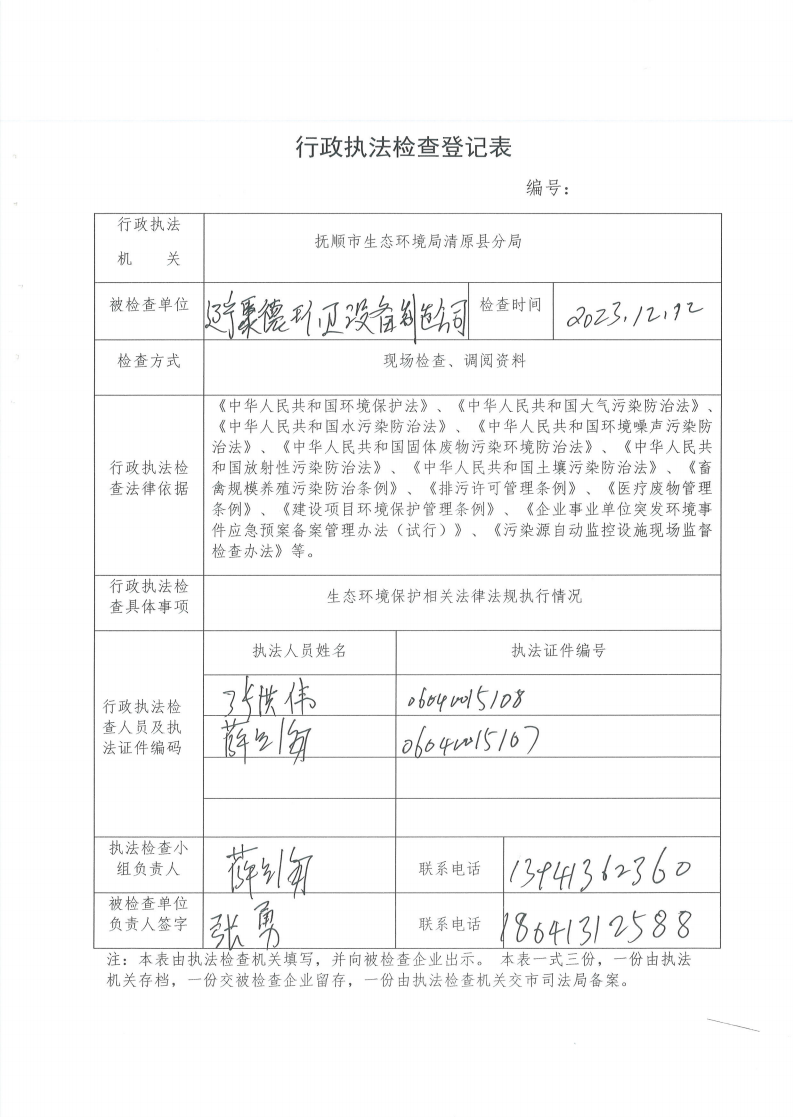 行政执法检查登记表
编号：
行政执法
机 关
抚顺市生态环境局清原县分局
被检查单位
辽宁聚德环卫设备制造公司
检查时间
2023.12.12
检查方式
现场检查、调阅资料
行政执法检
查法律依据
《中华人民共和国环境保护法》、《中华人民共和国大气污染防治法》、
《中华人民共和国水污染防治法》、《中华人民共和国环境噪声污染防
治法》、《中华人民共和国固体废物污染环境防治法》、《中华人民共
和国放射性污染防治法》、《中华人民共和国土壤污染防治法》、《畜
禽规模养殖污染防治条例》、《排污许可管理条例》、《医疗废物管理
条例》、《建设项目环境保护管理条例》、《企业事业单位突发环境事
件应急预案备案管理办法（试行）》、《污染源自动监控设施现场监督
检查办法》等。
行政执法检
查具体事项
生态环境保护相关法律法规执行情况
行政执法检
查人员及执
法证件编码
执法人员姓名
执法证件编号
洪伟
06040015108
薛
06040015107
执法检查小
组负责人
薛
联系电话
13941362360
被检查单位
负责人签字
张勇
联系电话
18641312588
注：本表由执法检查机关填写，并向被检查企业出示。 本表一式三份，一份由执法
机关存档，一份交被检查企业留存，一份由执法检查机关交市司法局备案。